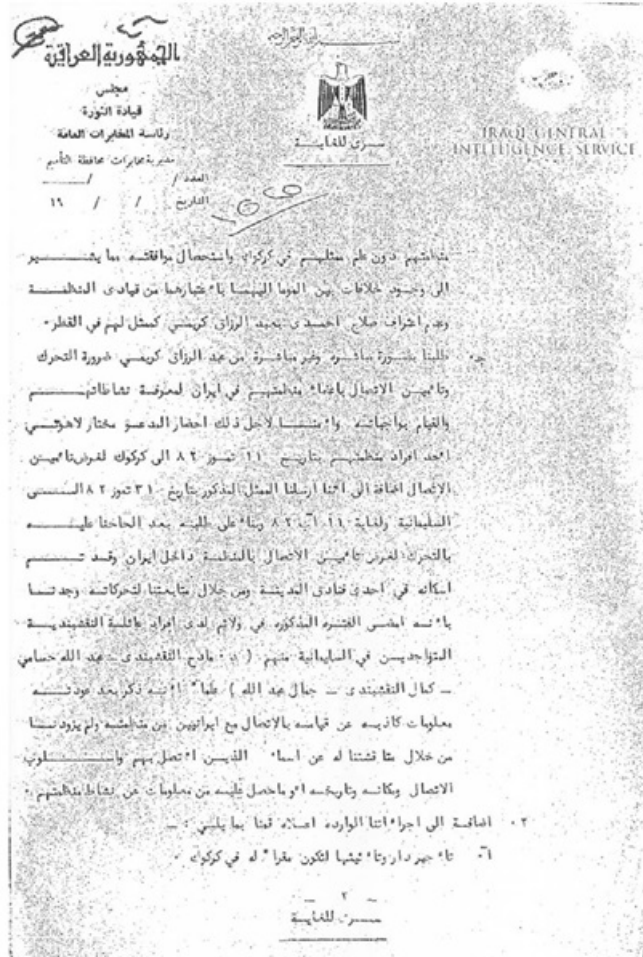 الجمهورية العراقية
مجلس
قيادة الثورة
رئاسة المخابرات العامة
مديرية مخابرات محافظة التأميم
العدد / /
التاريخ / / ١٩
سرى للغاية
IRAQI GENERAL
INTELLIGENCE SERVICE
منظمتهم دون علم ممثلهم في كركوك واستحصال موافقته مما يشير
الى وجود خلافات بين الموما اليهما باعتبارهما من قيادى المنظمة
وعدم اعتراف صلاح احمدى بعبد الرزاق كريمي كممثل لهم في القطر ٠
جـ٠ طلبنا بصورة مباشره وغير مباشرة من عبد الرزاق كريمي ضرورة التحرك
وتاءمين الاتصال باعضاء منظمتهم في ايران لمعرفة نشاطاتهم
والقيام بواجباته لاجل ذلك احضار المدعو مختار
احد افراد منظمتهم بتاريخ ١١ تموز ٨٢ الى كركوك لغرض تاءمين
الاتصال اضافة الى اننا ارسلنا الممثل المذكور بتاريخ ٣١ تموز ٨٢ الى
السليمانية ولغاية ١١ آب ٨٢ وبناء على طلبه بعد الحاحنا عليه
بالتحرك لغرض تاءمين الاتصال بالمنظمة داخل ايران وقد تم
اسكانه في احدى فنادق المدينة ومن خلال متابعتنا لتحركاته وجدنا
باءنه امضى الفتره المذكوره في ولائم لدى افراد عائلة النقشبندية
المتواجدين في السليمانية منهم ( مادح النقشبندى ـ عبد الله حسامي
ـ كمال النقشبندى ـ جمال عبد الله ) علما" اءنه ذكر بعد عودته
معلومات كاذبه عن قيامه بالاتصال مع ايرانيين من منظمته ولم يزودنا
من خلال مناقشتنا له عن اسماء الذين اءتصل بهم واسلوب
الاتصال ومكانه وتاريخه اءو ماحصل عليه من معلومات عن نشاط منظمتهم ٠
٠٣ اضافة الى اجراءاتنا الوارده اعلاه قمنا بما يلي : ـ
آ٠ تاءجير دار وتاءثيثها لتكون مقرا" له في كركوك ٠
ـ ٢ ـ
سرى للغاية